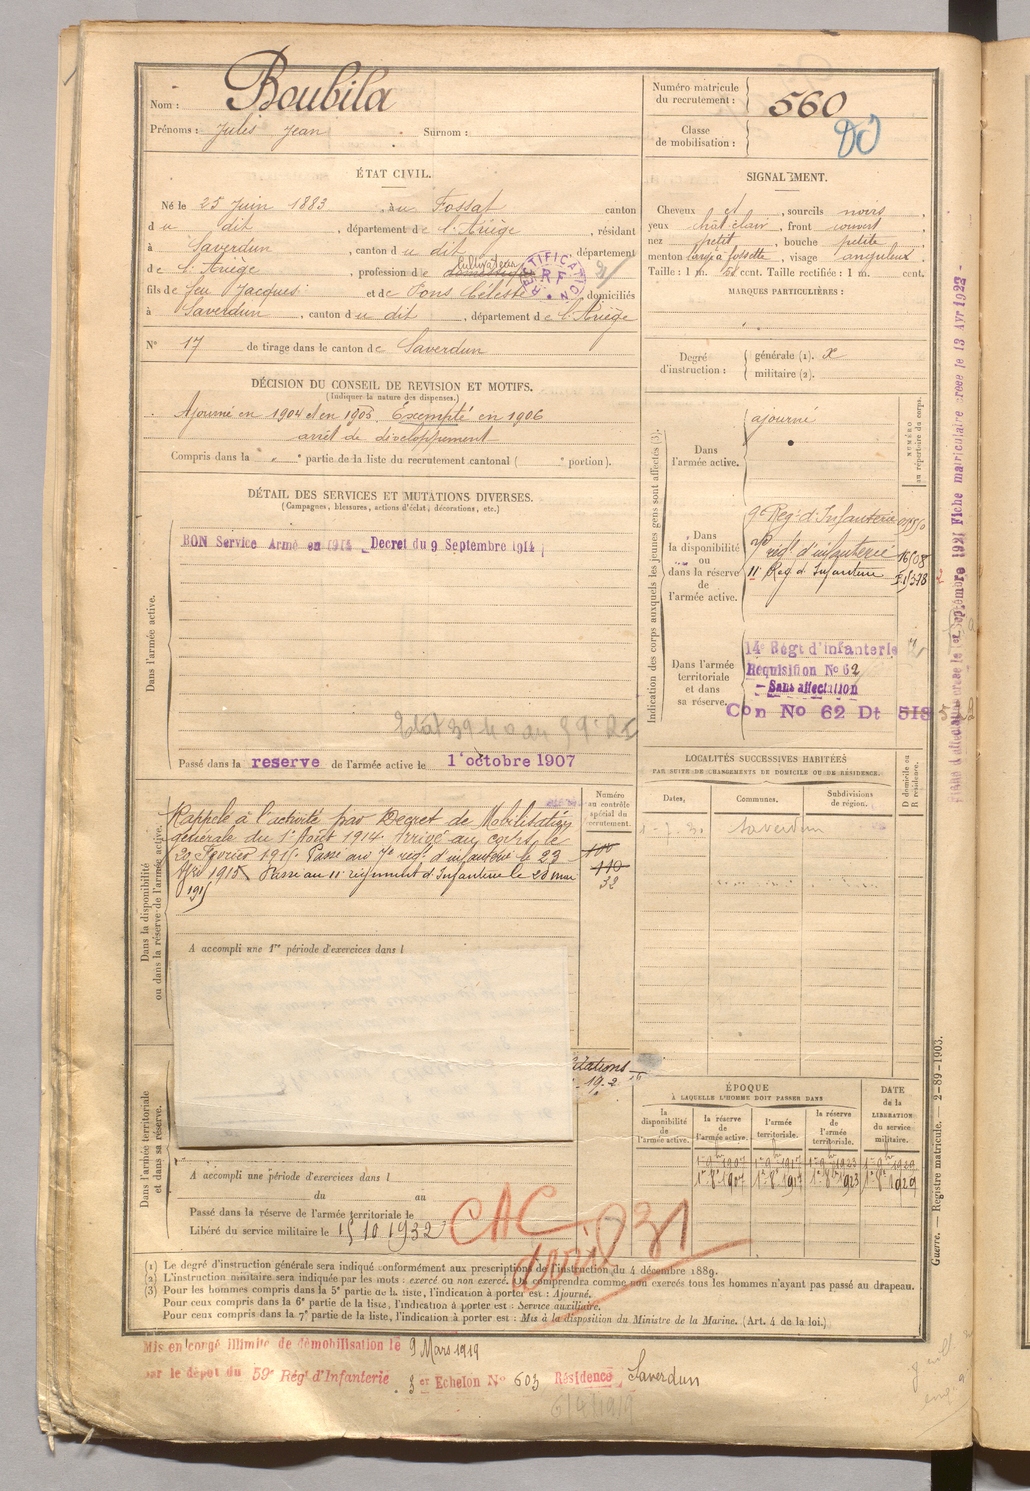 Nom : Boubila
Prénoms : Jules Jean Surnom :
Numéro matricule du recrutement : 560
Classe de mobilisation :
ÉTAT CIVIL.
Né le 25 Juin 1883, à u Fossat canton
d u dit, département de l'Ariège, résidant
à Saverdun, canton d u dit, département
de l'Ariège, profession de domestique cultivateur
RECTIFICATION RF
fils de feu Jacques et de Pons Céleste, domiciliés
à Saverdun, canton d u dit, département de l'Ariège
N° 17 de tirage dans le canton de Saverdun
SIGNALEMENT.
Cheveux et, sourcils noirs,
yeux chât clair, front couvert
nez petit, bouche petite
menton à fossette, visage anguleux
Taille : 1 m. 58 cent. Taille rectifiée : 1 m. cent.
MARQUES PARTICULIÈRES :
Degré d'instruction : générale (1). x
militaire (2).
DÉCISION DU CONSEIL DE REVISION ET MOTIFS.
(Indiquer la nature des dispenses).
Ajourné en 1904 et en 1905 Exempté en 1906
arrêt de développement
Compris dans la e partie de la liste du recrutement cantonal ( e portion).
DÉTAIL DES SERVICES ET MUTATIONS DIVERSES.
(Campagnes, blessures, actions d'éclat, décorations, etc.)
Dans l'armée active.
BON Service Armé en 1914 Decret du 9 Septembre 1914
Passé dans la reserve de l'armée active le 1er octobre 1907
Indication des corps auxquels les jeunes gens sont affectés (3).
NUMÉRO au répertoire du corps.
Dans l'armée active. ajourné
Dans la disponibilité ou dans la réserve de l'armée active.
9e Reg. d'Infanterie
7e régt d'infanterie 16508
11e Reg d'Infanterie
Dans l'armée territoriale et dans sa réserve.
14e Régt d'infanterie
Requisition No 62
Sans affectation
Con No 62 Dt 518
Dans la disponibilité ou dans la réserve de l'armée active.
Rappelé à l'activité par Decret de Mobilisation
générale du 1er Août 1914. Arrivé au corps le
20 Février 1915. Passé au 7e reg. d'infanterie le 23
1915 Passé au 11e régiment d'Infanterie le 23 mai
1915
Numéro au contrôle spécial du recrutement.
100
110
32
A accompli une 1re période d'exercices dans l
LOCALITÉS SUCCESSIVES HABITÉES
PAR SUITE DE CHANGEMENTS DE DOMICILE OU DE RÉSIDENCE.
Dates, Communes. Subdivisions de région. D domicile ou R résidence.
Saverdun
Dans l'armée territoriale et dans sa réserve.
A accompli une période d'exercices dans l
du au
Passé dans la réserve de l'armée territoriale le
Libéré du service militaire le 15 10 1932
CAC avril 931
ÉPOQUE
À LAQUELLE L'HOMME DOIT PASSER DANS
la disponibilité de l'armée active. la réserve de l'armée active. l'armée territoriale. la réserve de l'armée territoriale.
DATE de la LIBÉRATION du service militaire.
1er 8bre 1907 1er 8bre 1917 1er 8bre 1923 1er 8bre 1929
(1) Le degré d'instruction générale sera indiqué conformément aux prescriptions de l'instruction du 4 décembre 1889.
(2) L'instruction militaire sera indiquée par les mots : exercé ou non exercé. On comprendra comme non exercés tous les hommes n'ayant pas passé au drapeau.
(3) Pour les hommes compris dans la 5e partie de la liste, l'indication à porter est : Ajourné.
Pour ceux compris dans la 6e partie de la liste, l'indication à porter est : Service auxiliaire.
Pour ceux compris dans la 7e partie de la liste, l'indication à porter est : Mis à la disposition du Ministre de la Marine. (Art. 4 de la loi.)
Guerre. — Registre matricule. — 2-89-1903.
Mis en congé illimité de démobilisation le 9 Mars 1919
par le dépôt du 59e Régt d'Infanterie 3er Echelon No 603 Résidence Saverdun